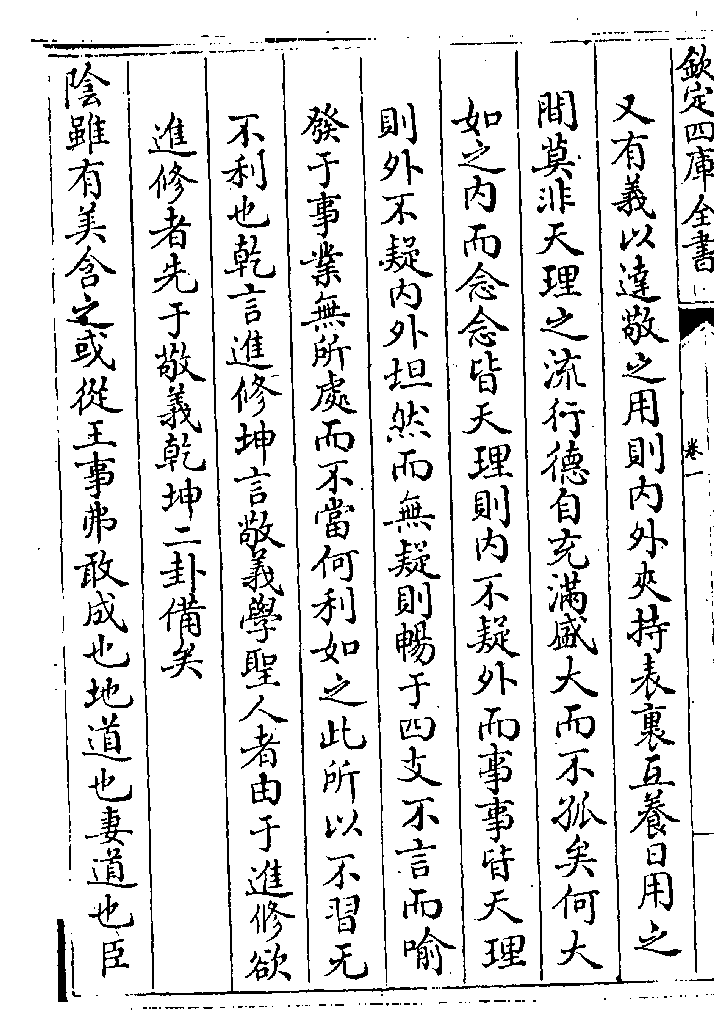 欽定四庫全書
卷一
又有義以達敬之用則内外夾持表裏互養日用之
間莫非天理之流行德自充滿盛大而不孤矣何大
如之内而念念皆天理則内不疑外而事事皆天理
則外不疑内外坦然而無疑則暢于四支不言而喻
發于事業無所處而不當何利如之此所以不習无
不利也乾言進修坤言敬義學聖人者由于進修欲
進修者先于敬義乾坤二卦備矣
陰雖有美含之或從王事弗敢成也地道也妻道也臣